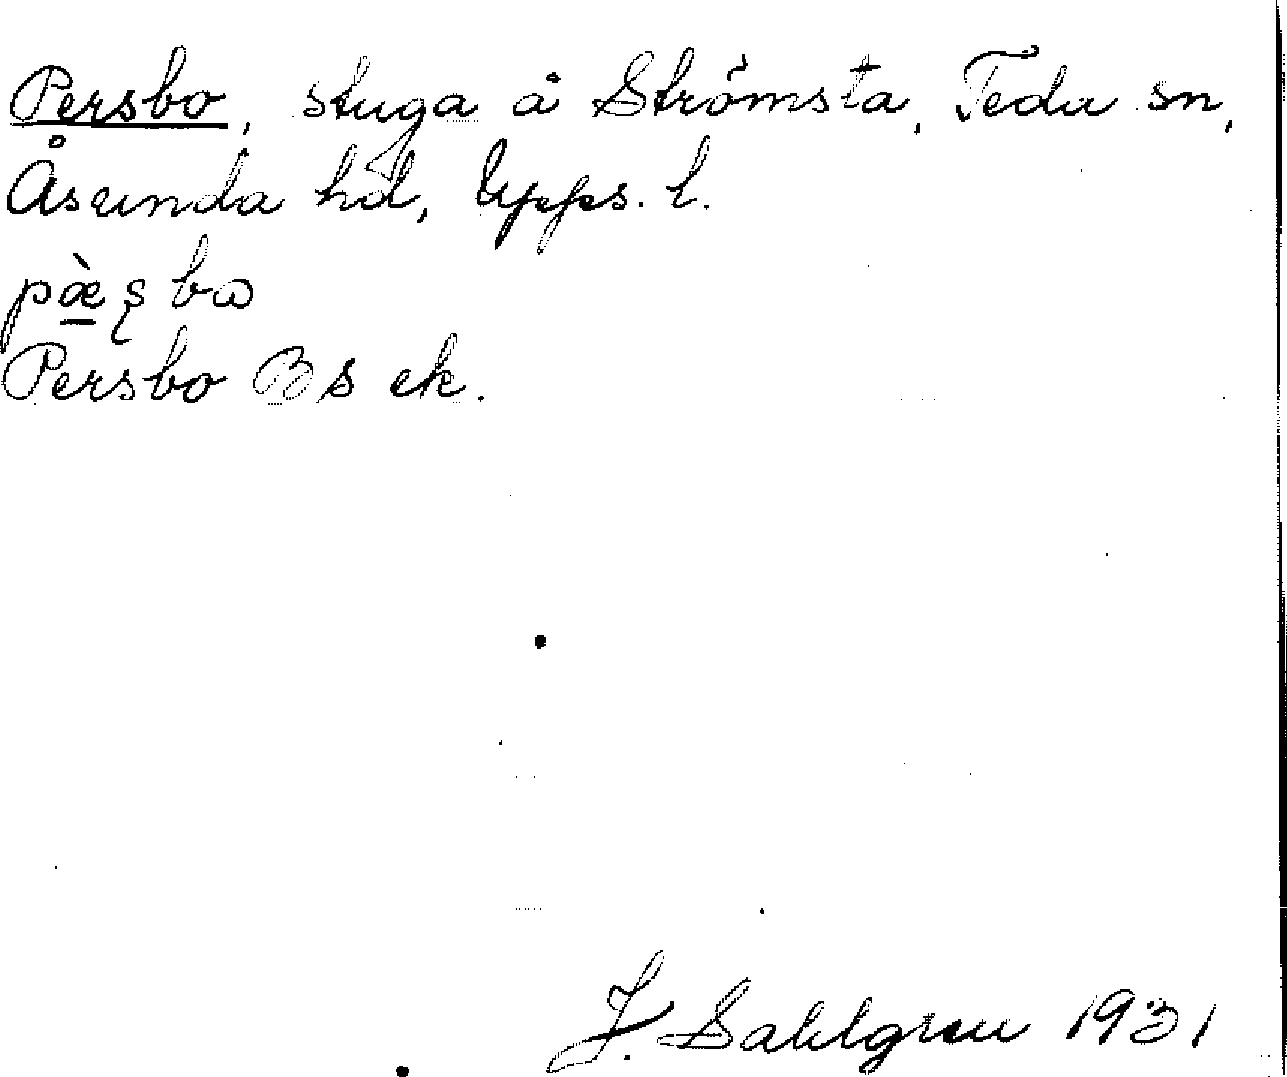 Persbo, stuga å Strömsta, Teda sn,
Åsunda hd, Upps. l.
pæ̀ʂbɷ
Persbo Bs ek.
J. Sahlgren 1931